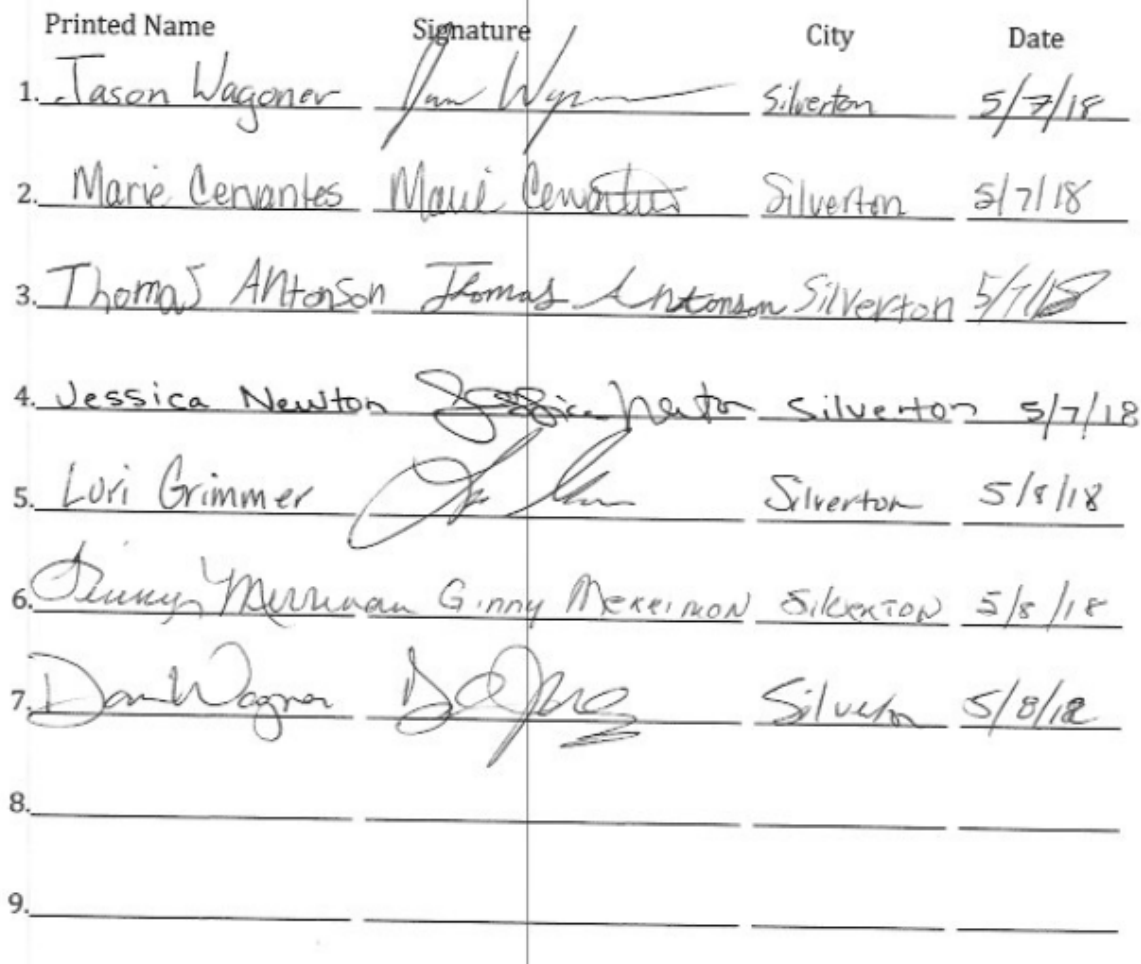 Printed Name Signature City Date
1. Jason Wagoner Silverton 5/7/18
2. Marie Cervantes Marie Cervantes Silverton 5/7/18
3. Thomas Antonson Thomas Antonson Silverton 5/7/18
4. Jessica Newton Jessica Newton Silverton 5/7/18
5. Lori Grimmer Silverton 5/8/18
6. Ginny Merriman Ginny Merrimon Silverton 5/8/18
7. Dan Wagner Silverton 5/8/18
8.
9.